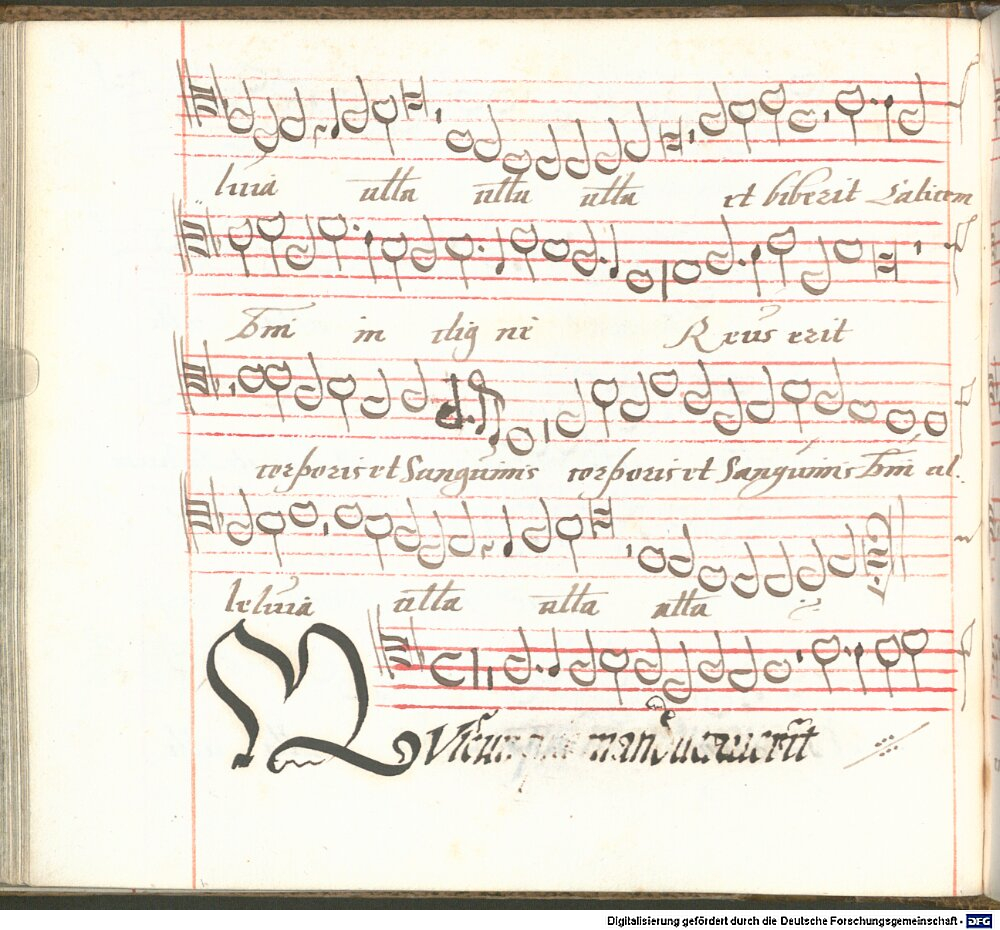 luia alla alla alla et biberit Calicem
Dm̄ in dig ne Reus erit
corporis et Sanguinis corporis et Sanguinis Dm̄ al
leluia alla alla alla
QVicunque manducauerit
Digitalisierung gefördert durch die Deutsche Forschungsgemeinschaft - DFG